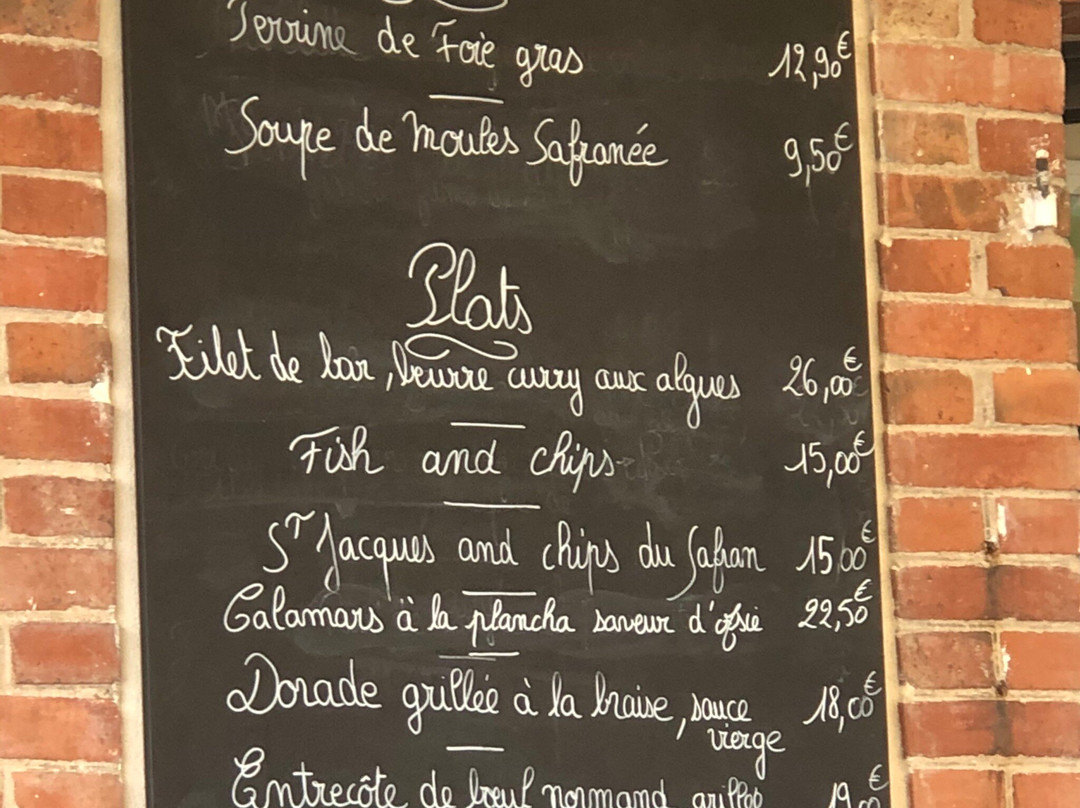 Terrine de Foie gras 12,90€
Soupe de Moules Safranée 9,50€
Plats
Filet de bar, beurre curry aux algues 26,00€
Fish and chips 15,00€
ST Jacques and chips du Safran 15,00€
Calamars à la plancha saveur d'Asie 22,50€
Dorade grillée à la braise, sauce 18,00€
vierge
Entrecôte de bœuf normand